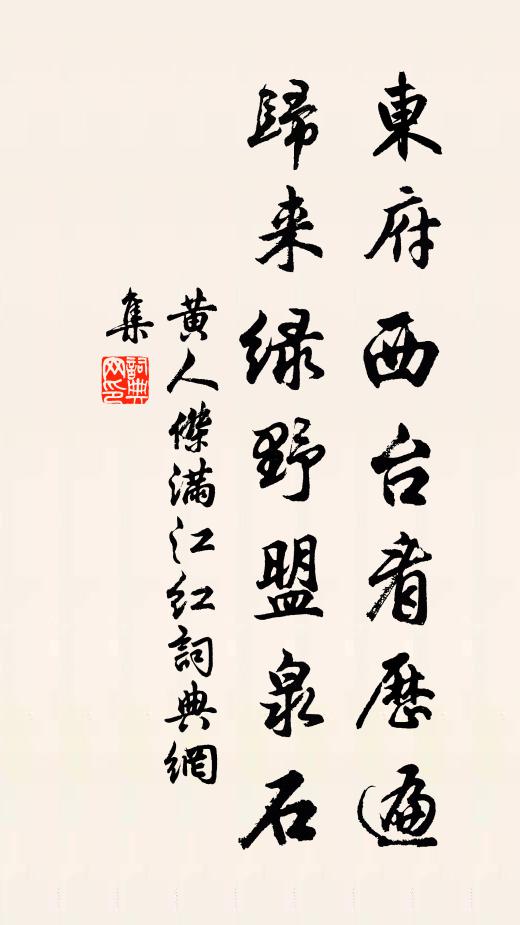 東府西台看歷遍
歸来緑野盟泉石
黄人傑滿江红詞典網
集
詞典網印